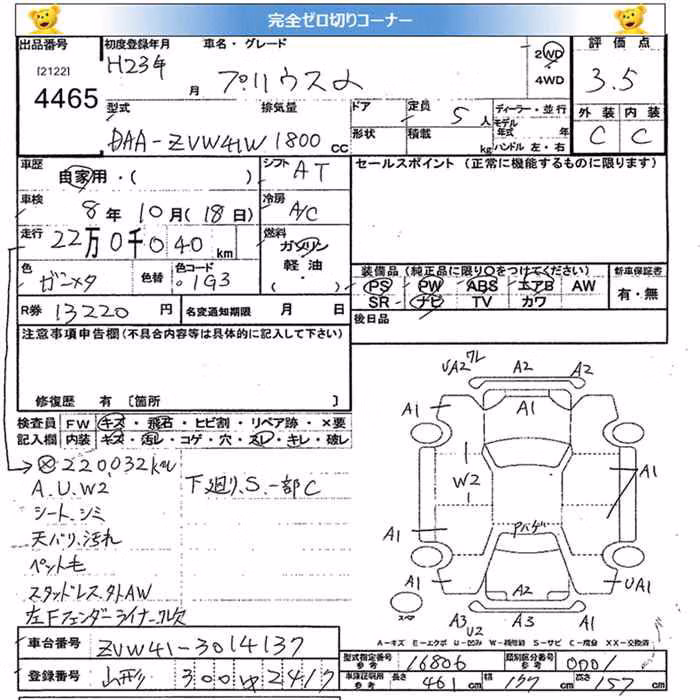 完全ゼロ切りコーナー
出品番号
[2122]
4465
初度登録年月
H23年 月
車名・グレード
プリウスα
2WD
4WD
評価点
3.5
型式
DAA-ZVW41W
排気量
1800 cc
ドア
形状
定員 5 人
積載 kg
ディーラー・並行
モデル年式 年
ハンドル 左・右
外装 内装
C C
車歴
自家用・( )
シフト
AT
セールスポイント (正常に機能するものに限ります)
車検
8年 10月(18日)
冷房
A/C
走行
22万0千040 km
燃料
ガソリン
軽油
(・)
色
ガンメタ
色替
色コード
1G3
装備品(純正品に限り○をつけてください)
PS PW ABS エアB AW
SR ナビ TV カワ
新車保証書
有・無
R券 13220 円
名変通知期限 月 日
後日品
注意事項申告欄(不具合内容等は具体的に記入して下さい)
修復歴 有 〔箇所 〕
検査員記入欄
FW キズ・飛石・ヒビ割・リペア跡・×要
内装 キズ・汚レ・コゲ・穴・スレ・キレ・破レ
220,032km
A.U.W2
下廻り、S.一部C
シート、シミ
天バリ、汚れ
ペット毛
スタッドレス、外AW
左Fフェンダーライナー欠
UA2 ワレ
A2
A2
A1
A1
A1
W2
A1
A1
アハゲ
A1
A2
UA1
スペア
A3
U2
A3
A1
A-キズ E-エクボ U-凹ミ W-補修跡 S-サビ C-腐食 XX-交換済
車台番号
ZVW41-3014137
登録番号
山形 300 ゆ 2417
型式指定番号
参考
16806
類別区分番号
参考
0001
車庫証明用
参考
長さ 461 cm
幅 177 cm
高さ 157 cm